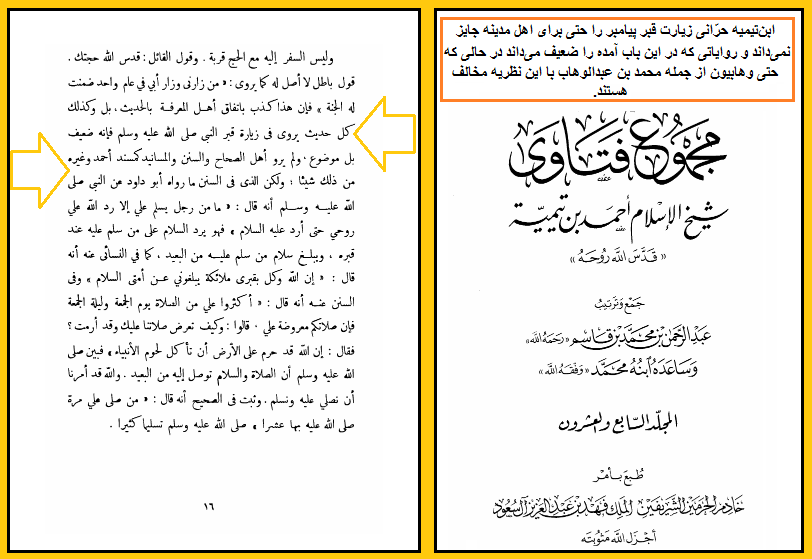 ابن‌تیمیه حرّانی زیارت قبر پیامبر را حتی برای اهل مدینه جایز
نمی‌داند و روایاتی که در این باب آمده را ضعیف می‌داند در حالی که
حتی وهابیون از جمله محمد بن عبدالوهاب با این نظریه مخالف
هستند.
مجموع فتاوى
شيخ الإسلام أحمد بن تيمية
« قدس الله روحه »
جمع وترتيب
عبد الرحمن بن محمد بن قاسم «رحمه الله»
وساعده ابنه محمد «وفقه الله»
المجلد السابع والعشرون
طبع بأمر
خادم الحرمين الشريفين الملك فهد بن عبد العزيز آل سعود
أجزل الله مثوبته
وليس السفر إليه مع الحج قربة . وقول القائل : قدس الله حجتك .
قول باطل لا أصل له كما يروى : « من زارنى وزار أبي في عام واحد ضمنت
له الجنة » فإن هذا كذب باتفاق أهل المعرفة بالحديث ، بل وكذلك
كل حديث يروى فى زيارة قبر النبي صلى الله عليه وسلم فإنه ضعيف
بل موضوع . ولم يرو أهل الصحاح والسنن والمسانيد كمسند أحمد وغيره
من ذلك شيئا ؛ ولكن الذى فى السنن ما رواه أبو داود عن النبي صلى
الله عليه وسلم أنه قال : « ما من رجل يسلم علي إلا رد الله علي
روحي حتى أرد عليه السلام » فهو يرد السلام على من سلم عليه عند
قبره ، ويبلغ سلام من سلم عليه من البعيد ، كما فى النسائى عنه أنه
قال : « إن الله وكل بقبرى ملائكة يبلغوني عن أمتى السلام » وفى
السنن عنه أنه قال : « أكثروا علي من الصلاة يوم الجمعة وليلة الجمعة
فإن صلاتكم معروضة علي . قالوا : وكيف تعرض صلاتنا عليك وقد أرمت ؟
فقال : إن الله قد حرم على الأرض أن تأكل لحوم الأنبياء » فبين صلى
الله عليه وسلم أن الصلاة والسلام توصل إليه من البعيد . والله قد أمرنا
أن نصلي عليه ونسلم . وثبت فى الصحيح أنه قال : « من صلى علي مرة
صلى الله عليه بها عشرا » صلى الله عليه وسلم تسليما كثيرا .
١٦